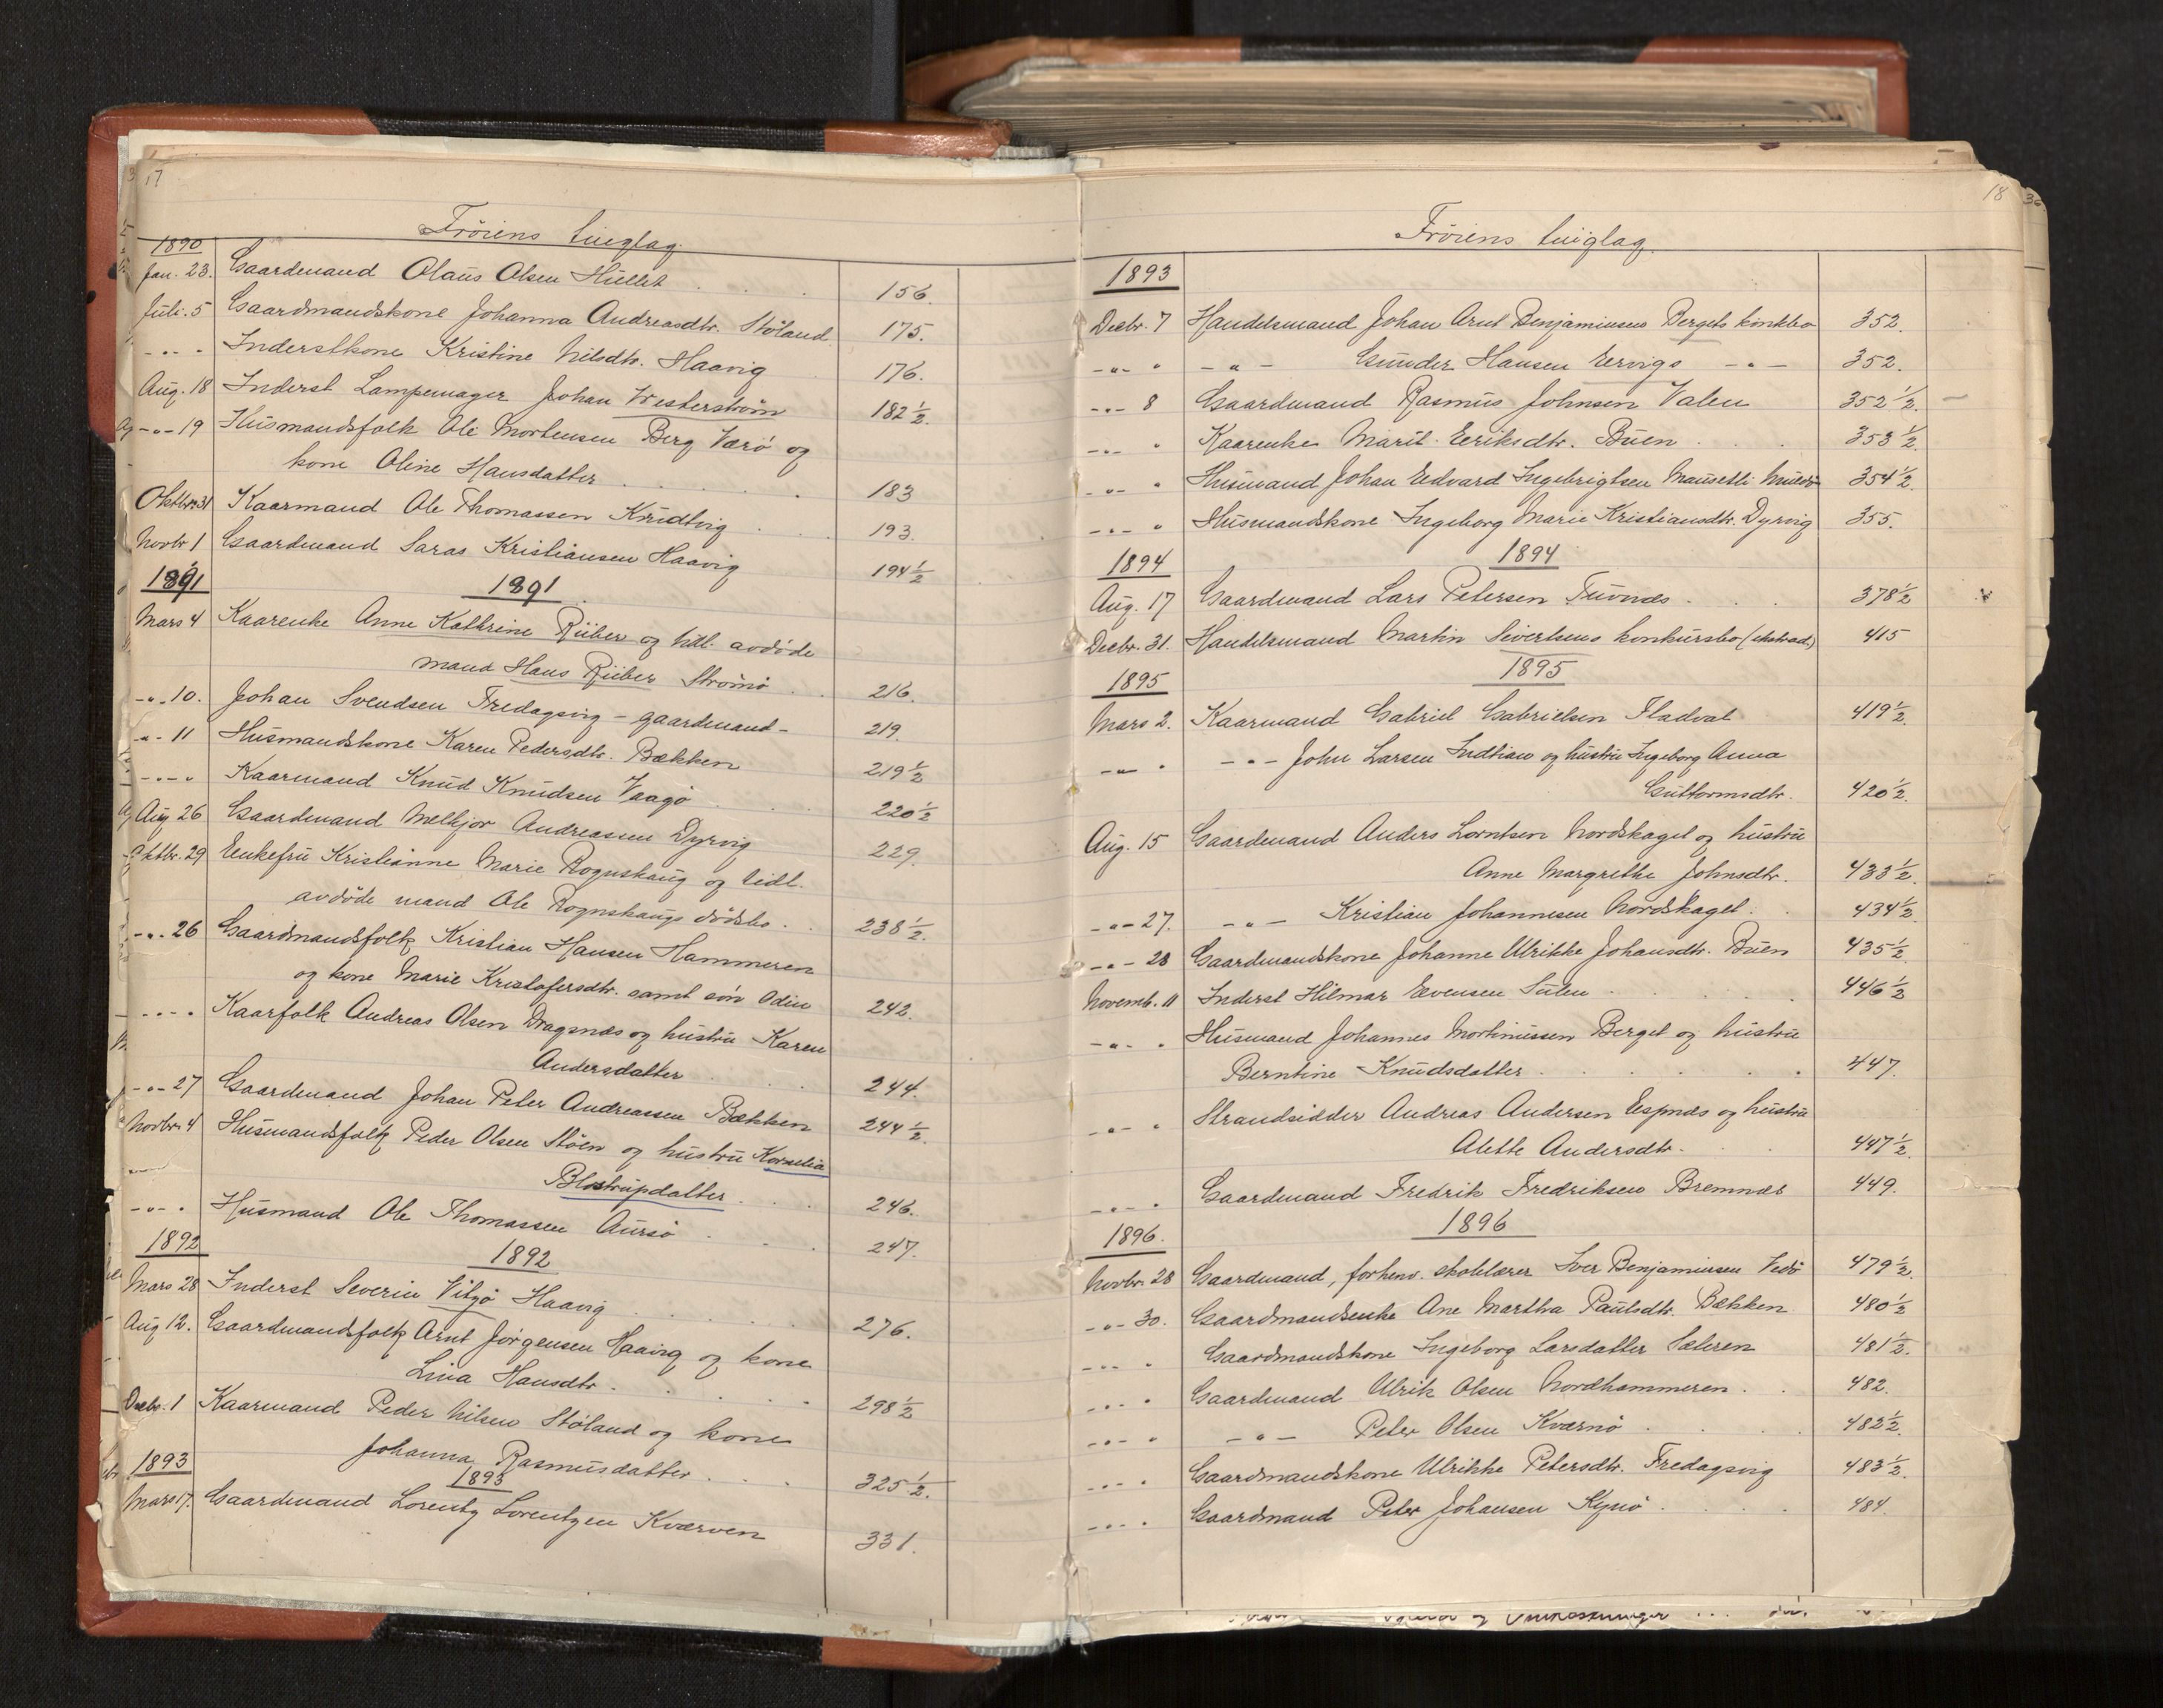 17
Frøiens tinglag.
1890
Jan. 23. Gaardmand Olaus Olsen Hullet . . . 156.
Juli. 5 Gaardmandskone Johanna Andreasdtr. Støland. 175.
-"- " Inderstkone Kristine Nilsdtr. Haavig 176.
Aug. 18 Inderst Lampemager Johan Westerstrøm 182 ½.
-"- 19 Husmandsfolk Ole Mortensen Berg Værø og
kone Oline Hansdatter . . . . . 183
Oktbr. 31 Kaarmand Ole Thomassen Kridtvig . . 193.
Novbr 1 Gaardmand Saras Kristiansen Haavig 194 ½
1891 1891
Mars 4 Kaarenke Anne Kathrine Rüber og tidl. avdøde
mand Hans Rüber Strømø . . 216.
-"- 10. Johan Svendsen Fredagsvig - gaardmand - 219.
-"- 11 Husmandskone Karen Pedersdtr. Bækken 219 ½
-"- " Kaarmand Knud Knudsen Vaagø . . . 220 ½
Aug 26 Gaardmand Melkjor Andreassen Dyrvig 229.
Oktbr. 29 Enkefru Kristianne Marie Rognskaug og tidl.
avdøde mand Ole Rognskaugs dødsbo . . 238 ½.
-"- 26 Gaardmandsfolk Kristian Hansen Hammeren
og kone Marie Kristofersdtr. samt søn Odin 242.
-"- " Kaarfolk Andreas Olsen Dragsnes og hustru Karen
Andersdatter . . . 244.
-"- 27 Gaardmand Johan Peter Andreassen Bækken 244 ½.
Novbr. 4 Husmandsfolk Peder Olsen Støen og hustru Kornelia
Blostrupdatter . . . 246.
-"- " Husmand Ole Thomassen Aursø . . . 247.
1892 1892
Mars 28 Inderst Severin Vitsø Haavig . . . . 276.
Aug 12. Gaardmandsfolk Arnt Jørgensen Haavig og kone
Lina Hansdtr. . . . . 298 ½
Decbr. 1 Kaarmand Peder Nilsen Støland og kone
Johanna Rasmusdatter . . . 325 ½.
1893 1893
Mars 17. Gaardmand Lorentz Lorentzen Kværven 331.
18
Frøiens tinglag.
1893
Decbr. 7 Handelsmand Johan Arnt Benjaminsens Bergets konkbo 352.
-"- " -"- Gunder Hansen Ervigs -"- 352.
-"- 8 Gaardmand Rasmus Johnsen Valen 352 ½.
-"- " Kaarenke Marit Eriksdtr. Buen . . . 353 ½.
-"- " Husmand Johan Edvard Ingebrigtsen Mausetli 354 ½.
-"- " Husmandskone Ingeborg Marie Kristiansdtr. Dyrvig 355.
1894 1894
Aug. 17 Gaardmand Lars Petersen Tuvnes . . . 378 ½
Decbr. 31. Handelsmand Martin Sivertsens konkursbo (ekstrad.) 415
1895 1895
Mars 2. Kaarmand Gabriel Gabrielsen Fladval 419 ½.
-"- " -"- John Larsen Indtian og hustru Ingeborg Anna
Guttormsdtr. 420 ½.
Aug. 15 Gaardmand Anders Lorntsen Nordskaget og hustru
Anne Margrethe Johnsdtr. 433 ½.
-"- 27. -"- Kristian Johannesen Nordskaget . . 434 ½.
-"- 28 Gaardmandskone Johanne Ulrikke Johansdtr. Buen 435 ½.
Novemb. 11 Inderst Hilmar Evensen Sulen . . . . . 446 ½
-"- " Husmand Johannes Mortinussen Berget og hustru
Berntine Knudsdatter . . . . . . 447.
-"- " Strandsidder Andreas Andersen Espnes og hustru
Alette Andersdtr. . . 447 ½.
-"- " Gaardmand Fredrik Fredriksen Bremnes 449.
1896. 1896
Novbr. 28 Gaardmand, forhenv. skolelærer Iver Benjaminsen Vedø 479 ½.
-"- 30. Gaardmandsenke Ane Martha Paulsdtr. Bækken 480 ½
-"- " Gaardmandskone Ingeborg Larsdatter Sæteren 481 ½.
-"- " Gaardmand Ulrik Olsen Nordhammeren . . 482.
-"- " -"- Peter Olsen Kværnø . . . 482 ½.
-"- " Gaardmandskone Ulrikke Petersdtr. Fredagsvig 483 ½.
-"- " Gaardmand Peter Johansen Kynø . . . . 484.